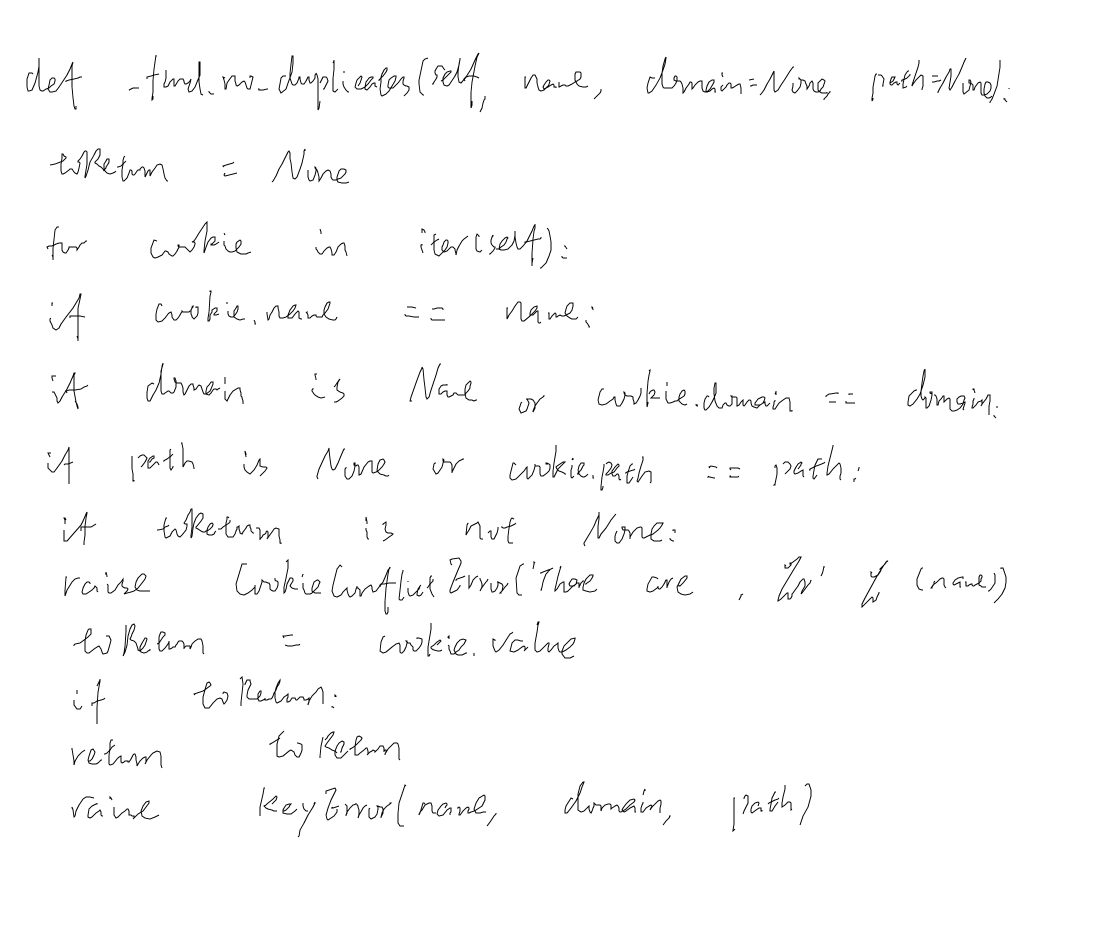 def _find_no_duplicates(self, name, domain=None, path=None):
toReturn = None
for cookie in iter(self):
if cookie.name == name:
if domain is None or cookie.domain == domain:
if path is None or cookie.path == path:
if toReturn is not None:
raise CookieConflictError('There are , %r' % (name))
toReturn = cookie.value
if toReturn:
return toReturn
raise KeyError(name, domain, path)